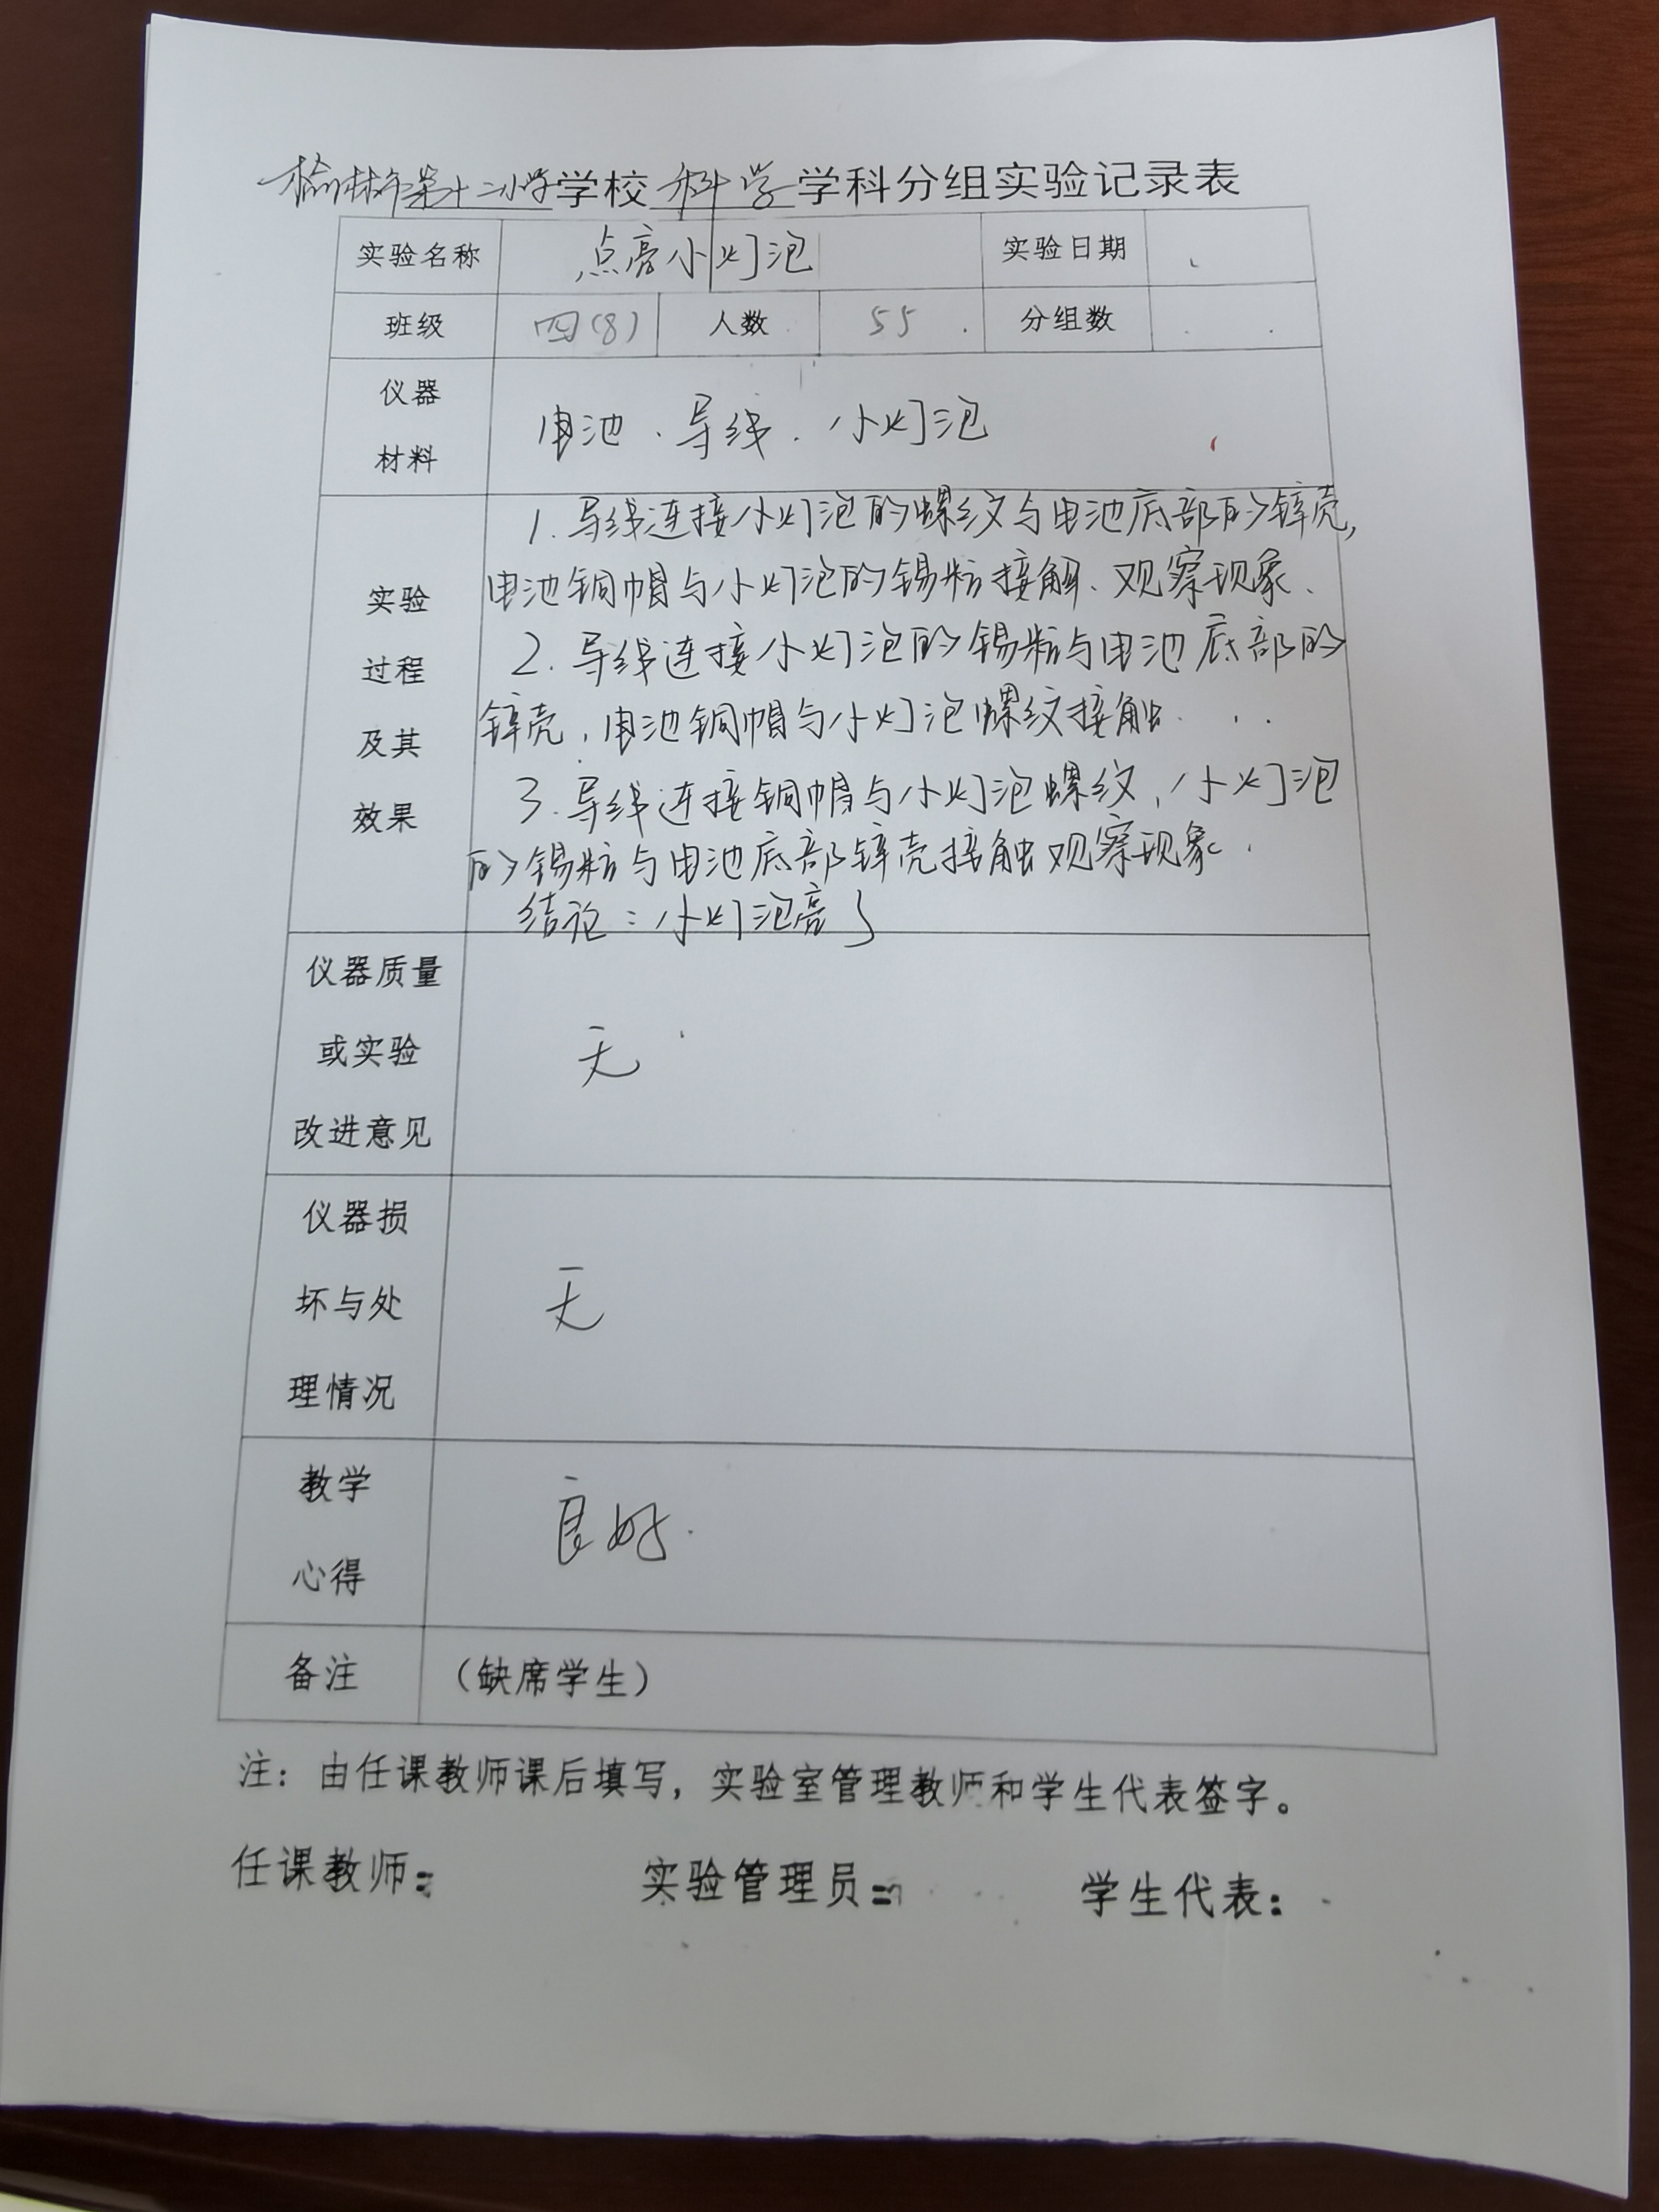 榆林市第十二小学学校科学学科分组实验记录表
实验名称 点亮小灯泡 实验日期
班级 四(8) 人数 55 分组数
仪器
材料
电池、导线、小灯泡
实验
过程
及其
效果
1.导线连接小灯泡的螺纹与电池底部的锌壳,
电池铜帽与小灯泡的锡粒接触、观察现象、
2.导线连接小灯泡的锡粒与电池底部的
锌壳,电池铜帽与小灯泡螺纹接触
3.导线连接铜帽与小灯泡螺纹,小灯泡
的锡粒与电池底部锌壳接触观察现象.
结论:小灯泡亮了
仪器质量
或实验
改进意见
无
仪器损
坏与处
理情况
无
教学
心得
良好.
备注 (缺席学生)
注:由任课教师课后填写,实验室管理教师和学生代表签字。
任课教师: 实验管理员: 学生代表: